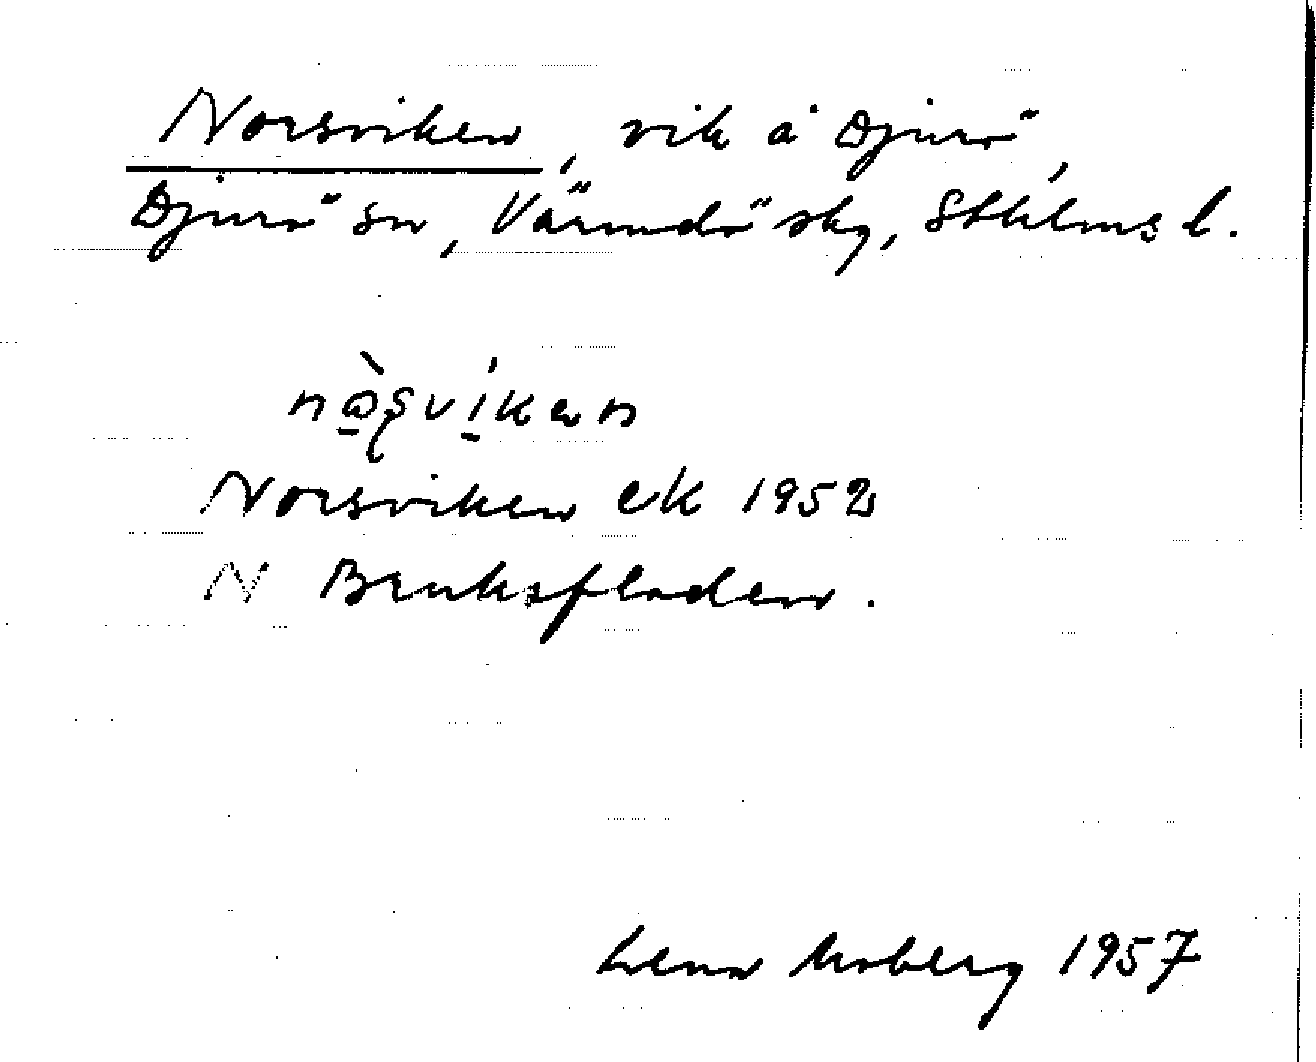 Norsviken, vik å Djurö,
Djurö sn, Värmdö skg, Sthlms l.
Norsviken ek 1952
N Bruksfladen.
Lena Moberg 1957